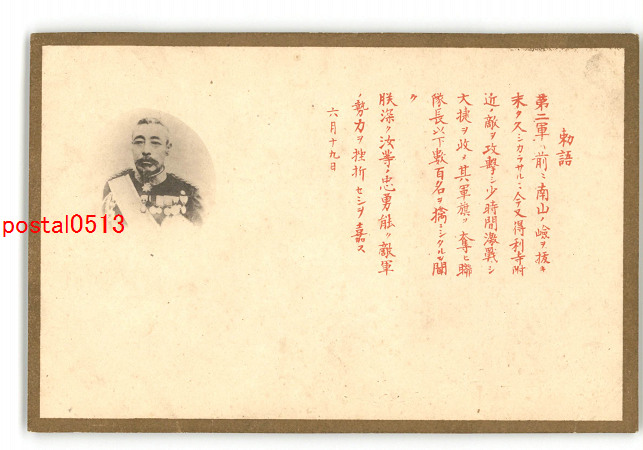 勅語
第二軍ハ前ニ南山ノ嶮ヲ抜キ
未タ久シカラサルニ今又得利寺附
近ノ敵ヲ攻撃シ少時間激戦シ
大捷ヲ収メ其軍旗ヲ奪ヒ聯
隊長以下数百名ヲ擒ニシタルヲ聞
ク
朕深ク汝等ノ忠勇能ク敵軍
ノ勢力ヲ挫折セシヲ嘉ス
六月十九日
postal0513